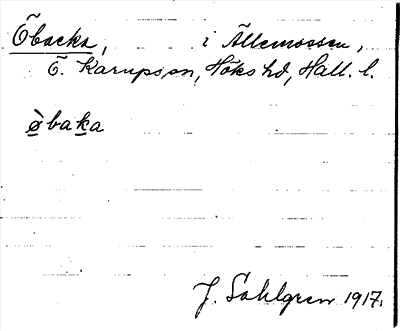 Öbacka, i Ällemossen,
Ö. Karups sn, Höks hd, Hall. l.
ø̀baka
J. Sahlgren 1917.